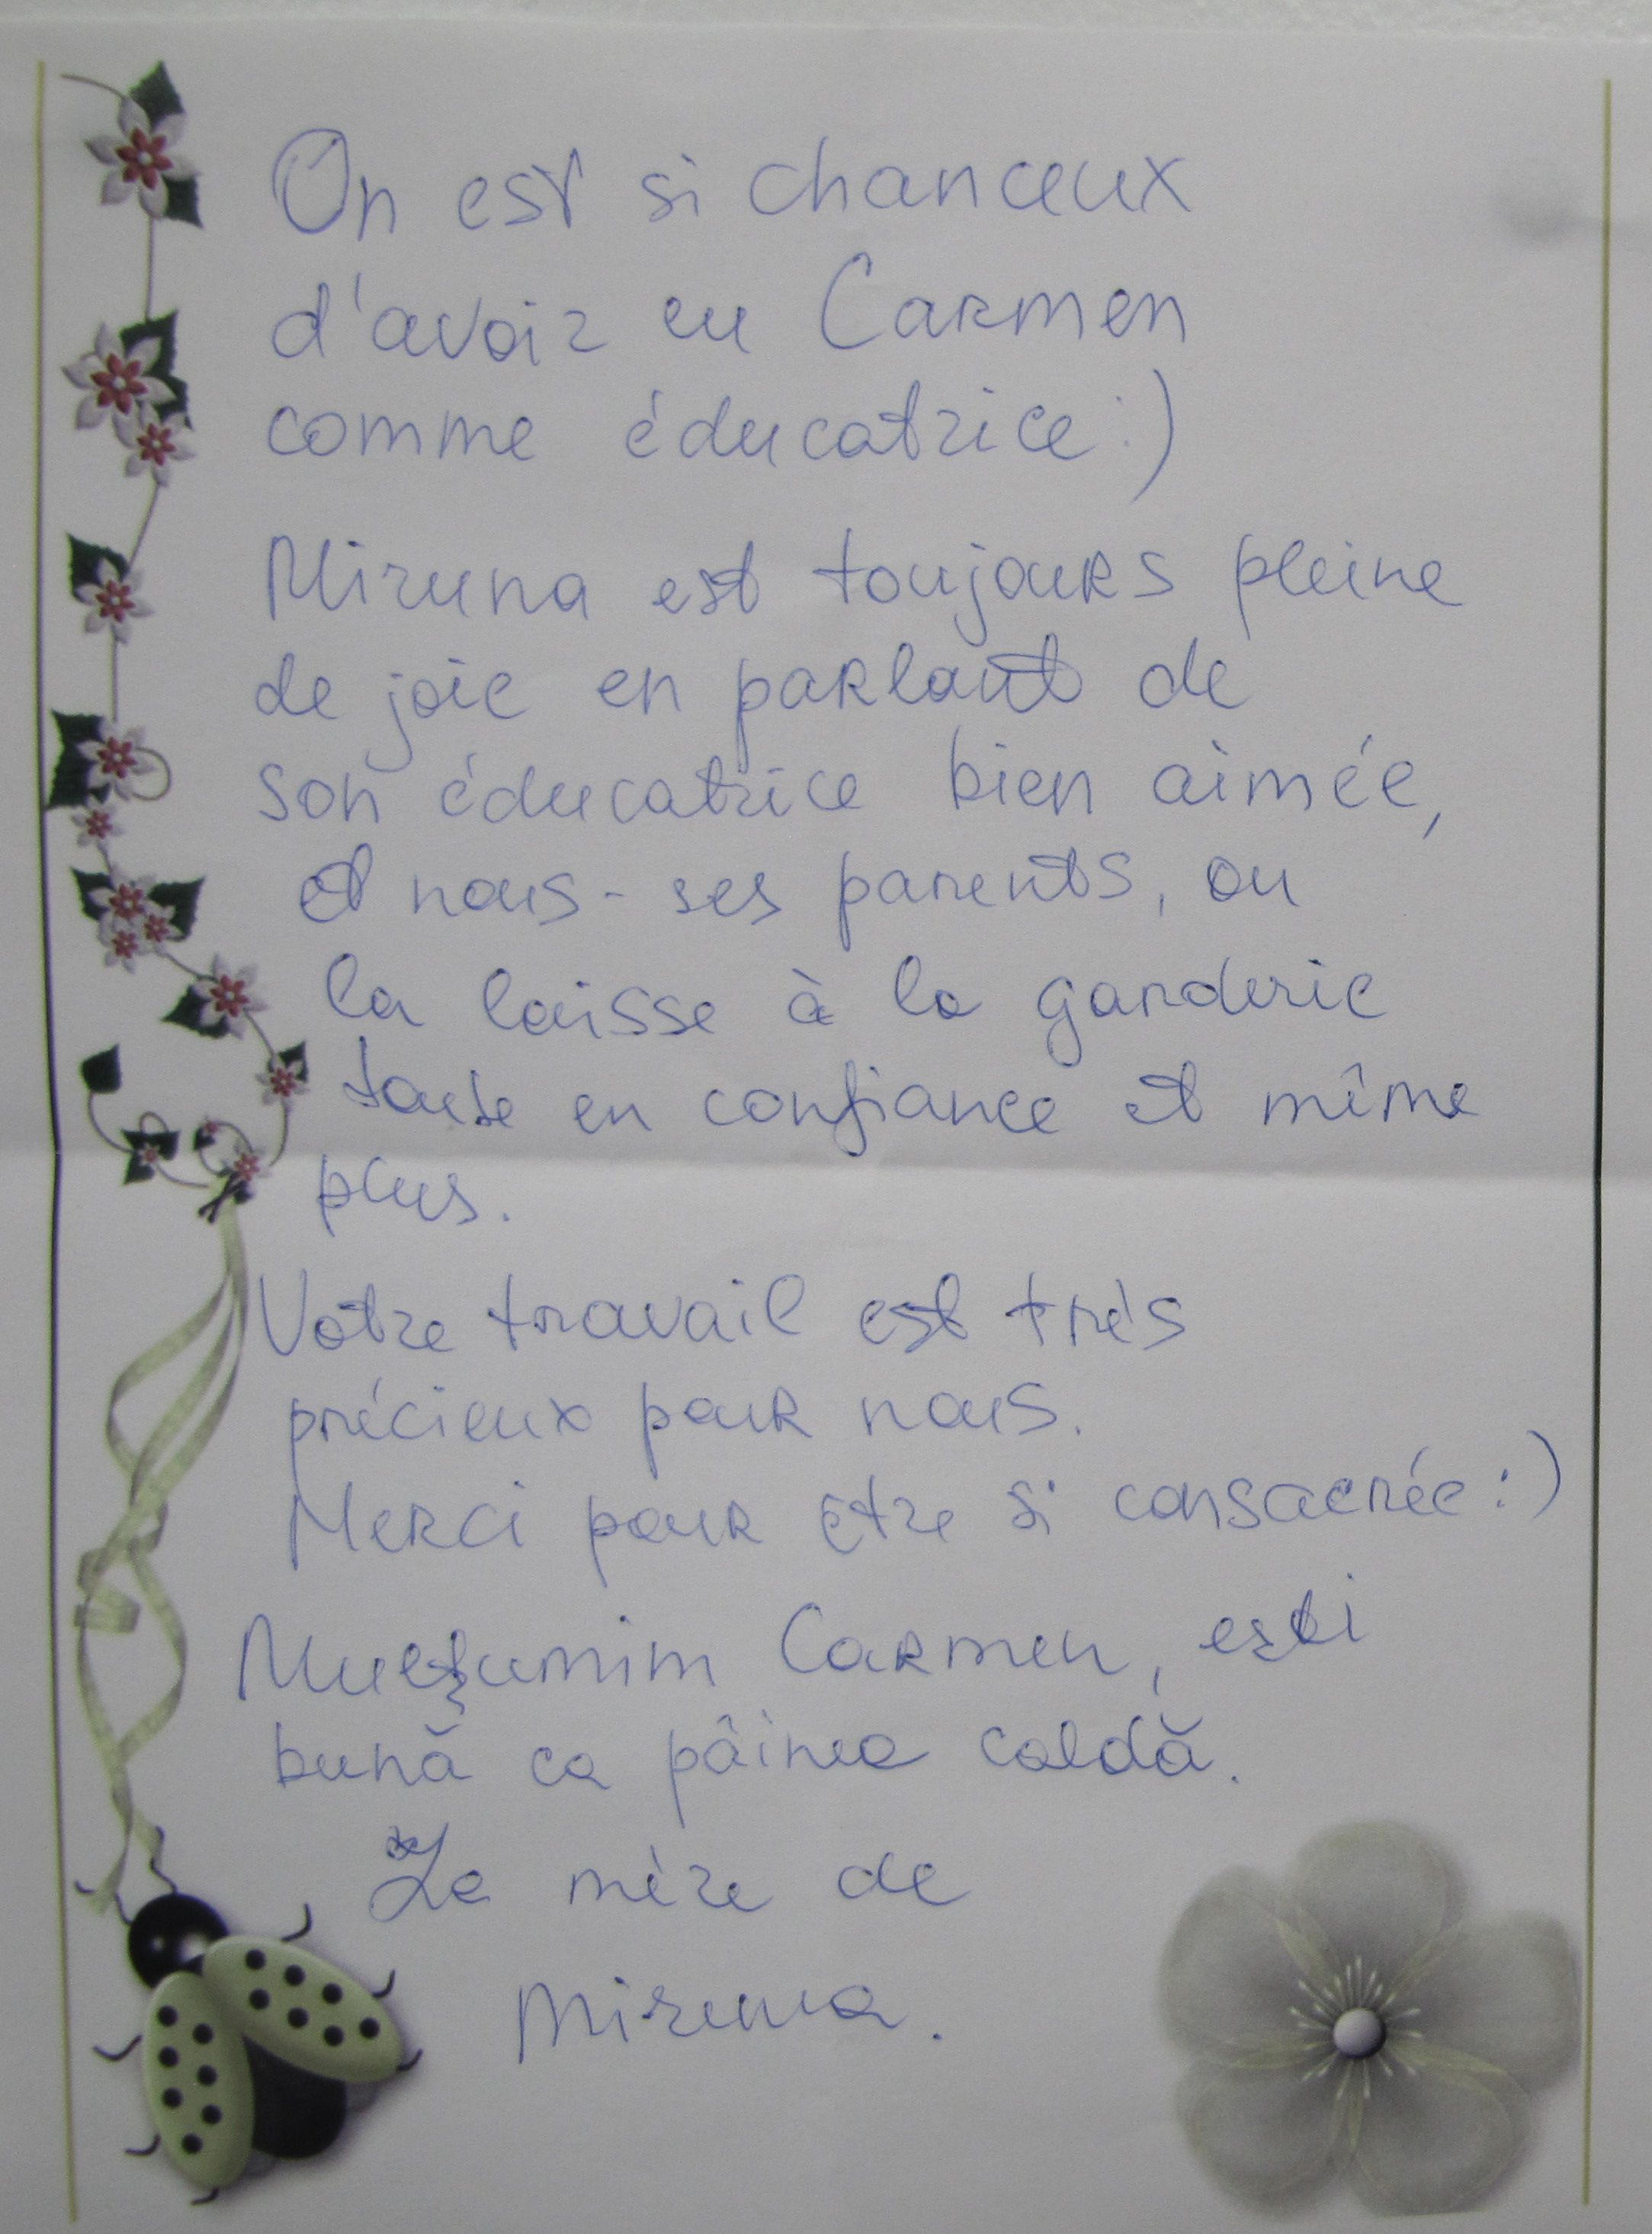 On est si chanceux
d'avoir eu Carmen
comme éducatrice :)
Miruna est toujours pleine
de joie en parlant de
son éducatrice bien aimée,
et nous - ses parents, on
la laisse à la garderie
toute en confiance et même
plus.
Votre travail est très
précieux pour nous.
Merci pour être si consacrée :)
Mulţumim Carmen, esti
bună ca pâinea caldă.
La mère de
Miruna.